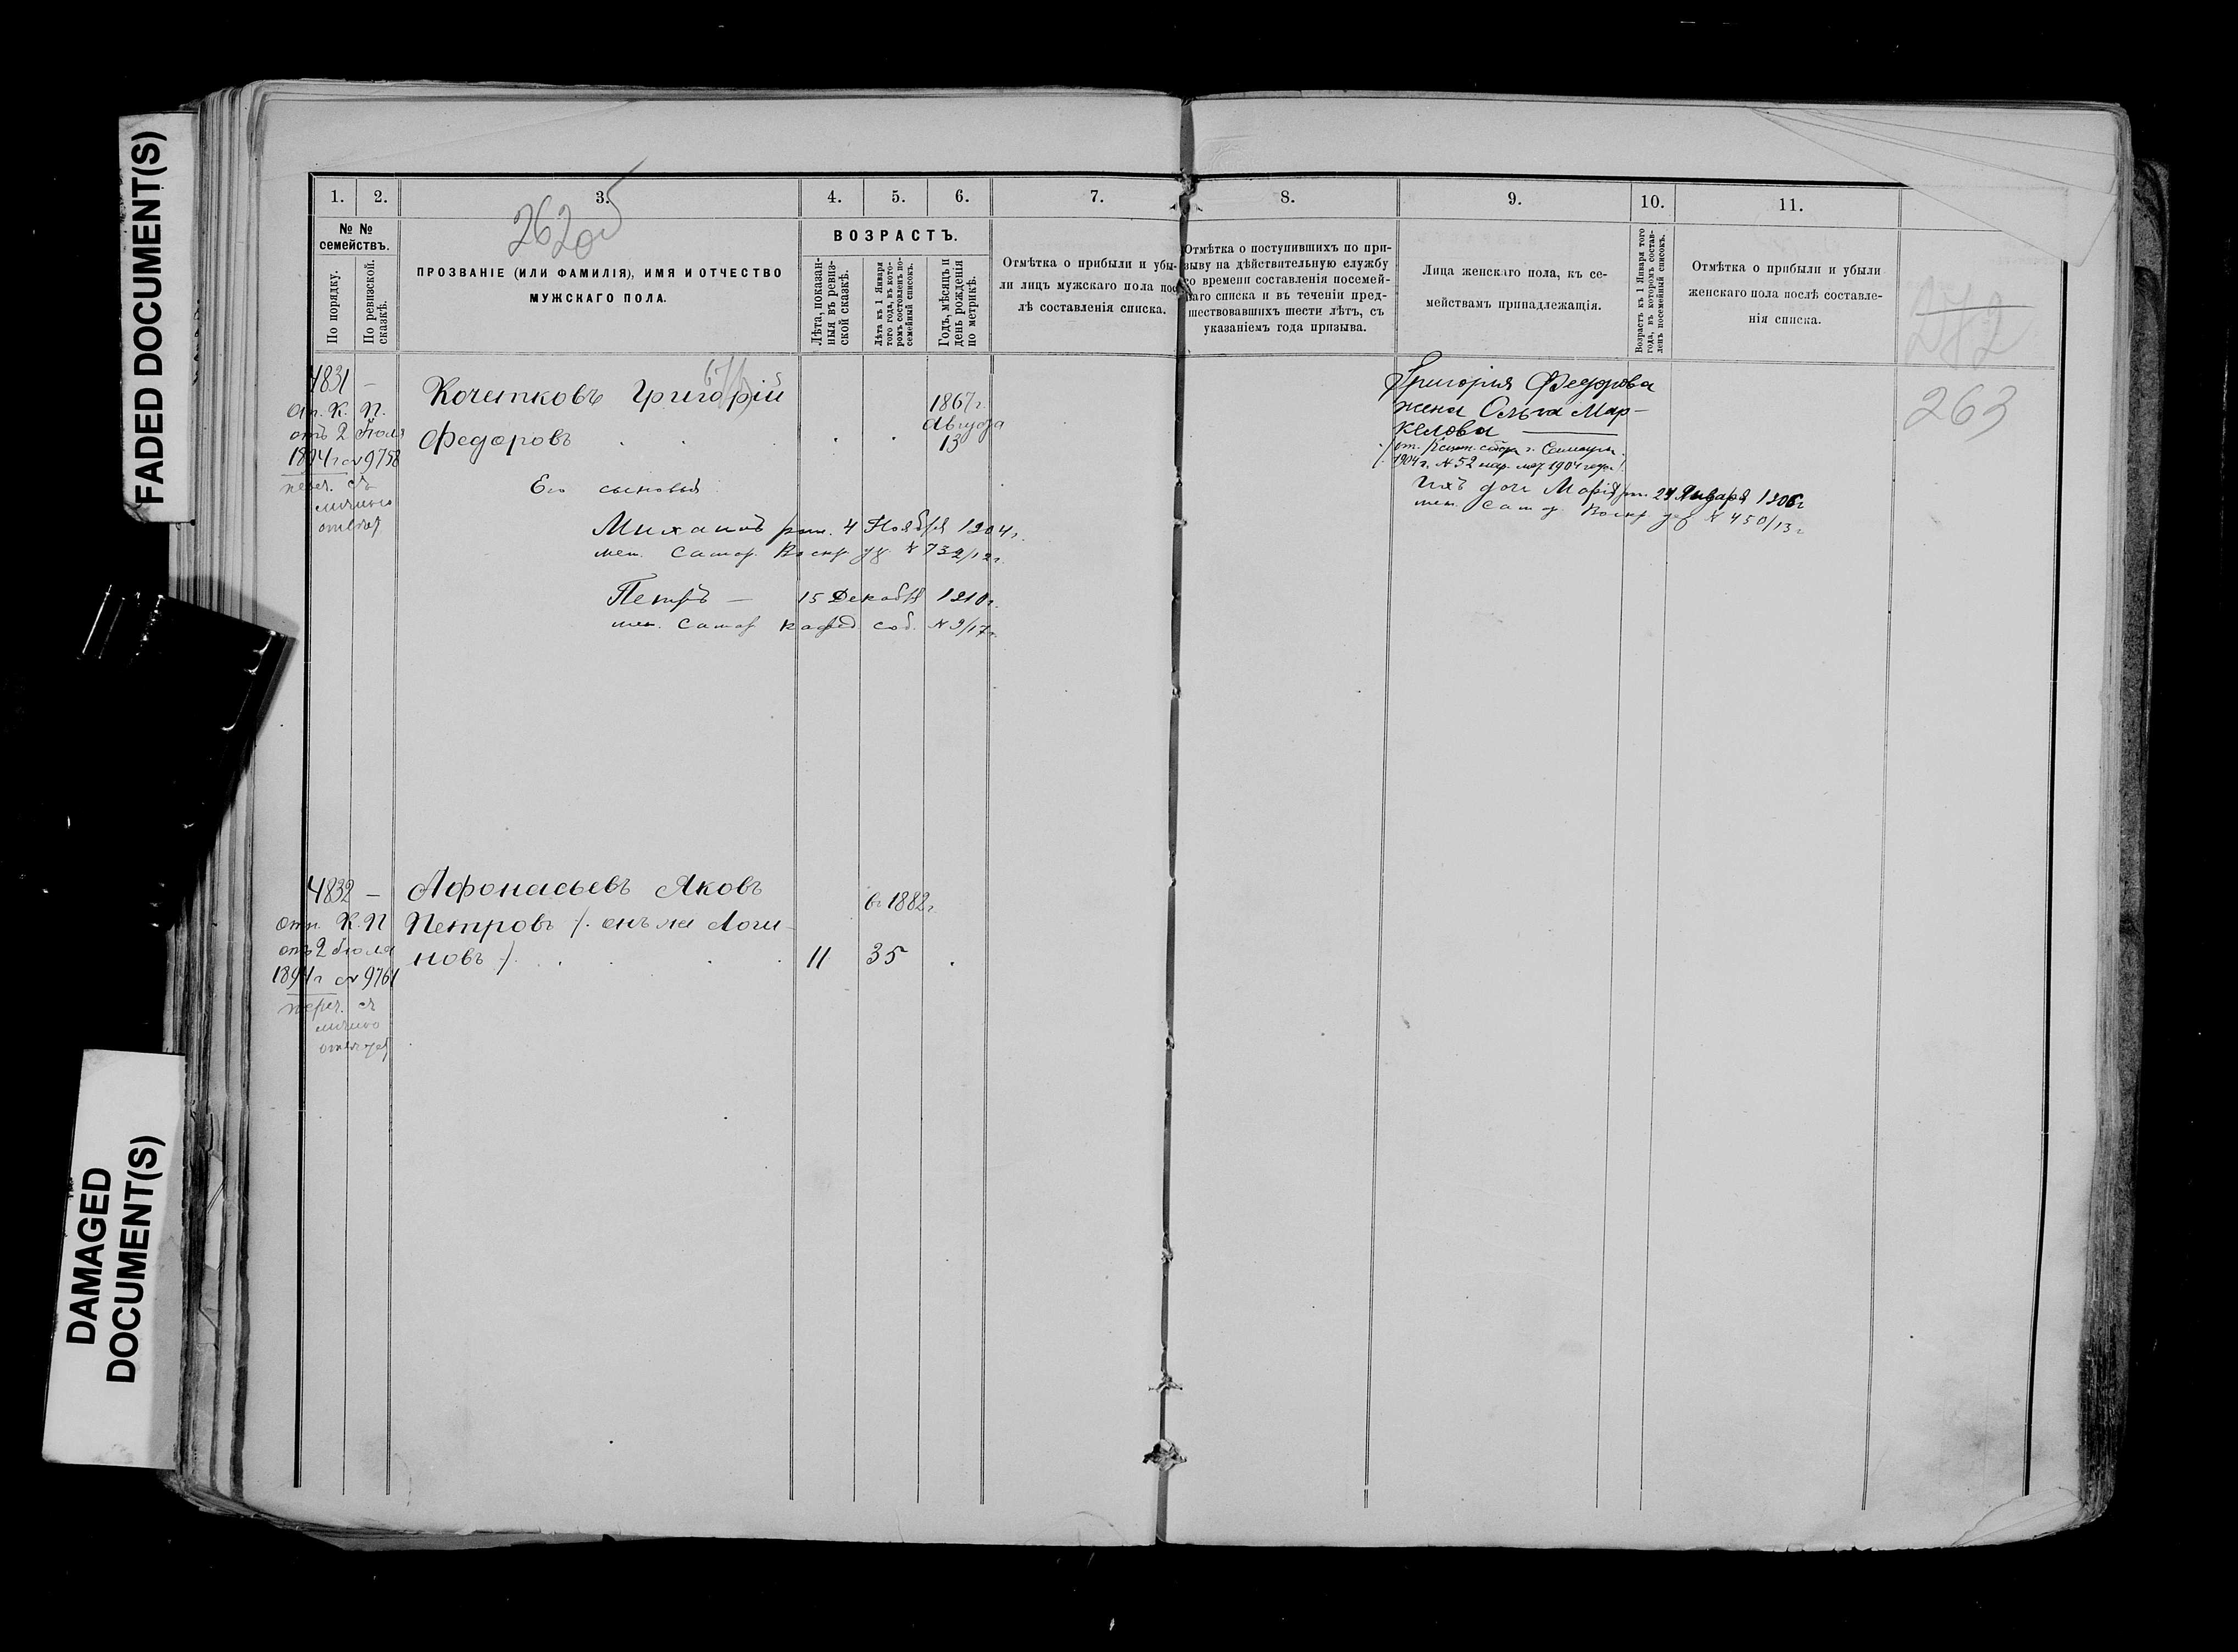 FADED DOCUMENT(S)
DAMAGED
DOCUMENT(S)
1.
2.
3.
4.
5.
6.
7.
8.
9.
10.
11.
262об
№ №
семействъ.
По порядку.
По ревизской.
сказкѣ.
ПРОЗВАНІЕ (ИЛИ ФАМИЛІЯ), ИМЯ И ОТЧЕСТВО
МУЖСКАГО ПОЛА.
ВОЗРАСТЪ.
Лѣта, показан-
ныя въ ревиз-
ской сказкѣ.
Лѣта къ 1 Января
того года, въ кото-
ромъ составленъ по-
семейный списокъ.
Годъ, мѣсяцъ и
день рожденія
по метрикѣ.
Отмѣтка о прибыли и убы-
ли лицъ мужскаго пола пос-
лѣ составленія списка.
Отмѣтка о поступившихъ по при-
зыву на дѣйствительную службу
со времени составленія посемей-
наго списка и въ теченіи пред-
шествовавшихъ шести лѣтъ, съ
указаніемъ года призыва.
Лица женскаго пола, къ се-
мействамъ принадлежащія.
Возрастъ къ 1 Января того
года, въ которомъ состав-
ленъ посемейный списокъ.
Отмѣтка о прибыли и убыли
женскаго пола послѣ составле-
нія списка.
272
263
4831 —
К. П.
отъ 2 Іюля
1894 г № 9758
переч. съ
личною
Кочетковъ Григорій
Федоровъ
1867 г.
Августа
13
Его сыновья
Михаилъ рж. 4 Ноября 1904 г.
мет. Самар. Воскр. № 732/12 г.
Петръ — 15 Декабря 1910 г.
мет. Самар. Кафед. соб. № 9/17 г.
Григорія Федорова
жена Ольга Мар-
келова
г. Самары
1904 г. № 52 1904 года
Ихъ дочь Марія рж. 24 Января 1906 г.
мет. Самар. Воскр. № 450/13 г.
4832 —
отн. К. П
отъ 2 Іюля
1894 г № 9761
переч. съ
личною
Афонасьевъ Яковъ
Петровъ /. онъ же Логи-
новъ ./
11
въ 1882 г.
35